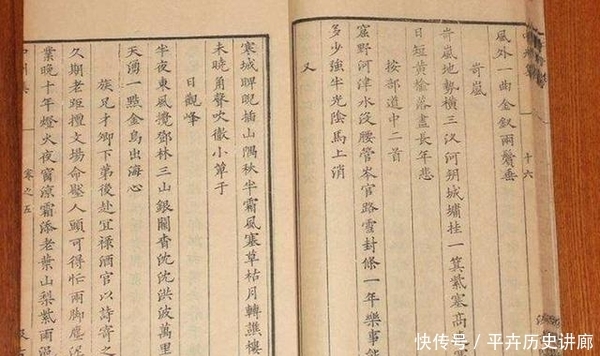 十六
風外一曲金釵兩鬢垂
岢嵐
岢嵐地勢橫三汊河朔城墉挂一箕紫塞高
日短黃楡落盡長年悲
按部道中二首
窟野河津水沒腰管岑官路雪封條一年樂事能
多少強半光陰馬上消
又
寒城睥睨插山隅秋半霜風塞草枯月轉譙樓
未曉角聲吹徹小單于
日觀峰
半夜東風攪鄧林三山銀闕杳沈沈洪波萬里
天湧一點金烏出海心
族兄才卿下第後赴宜祿酒官以詩寄之
久期老矩擅文場命壓人頭可得忙兩脚塵泥
業晚十年燈火夜窗涼霜添老葉山梨紫雨
卷之五
快传号／平卉历史讲廊